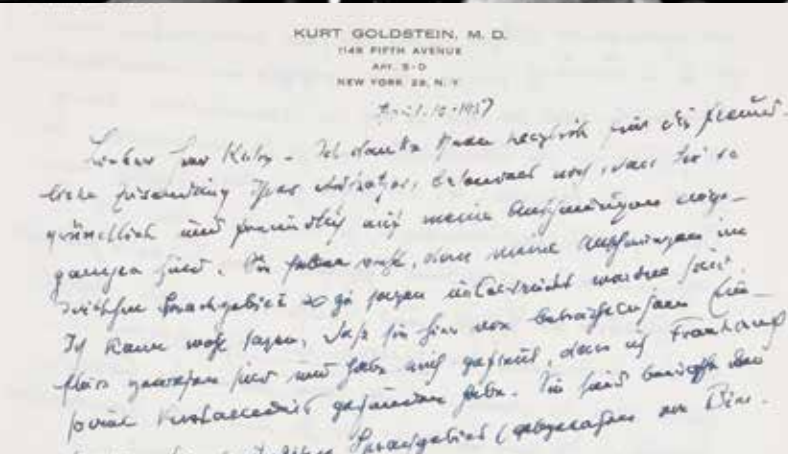 KURT GOLDSTEIN, M. D.
1148 FIFTH AVENUE
APT. 5-D
NEW YORK 28, N. Y.
April. 10 - 1957
Lieber Herr Kuhn - Ich danke Ihnen herzlich für die freund-
liche Zusendung Ihres Aufsatzes, besonders auch, dass Sie so
gründlich und freundlich auf meine Anschauungen einge-
gangen sind. Sie haben recht, dass meine Anschauungen im
deutschen Sprachgebiet so zu sagen unterdrückt worden sind.
Ich kann wohl sagen, dass sie hier von beträchtlichem Ein-
fluss gewesen sind und habe mich gefreut, dass ich Frankreich
soviel Verständnis gefunden habe. Sie sind
Sprachgebiet (abgesehen von Bins-